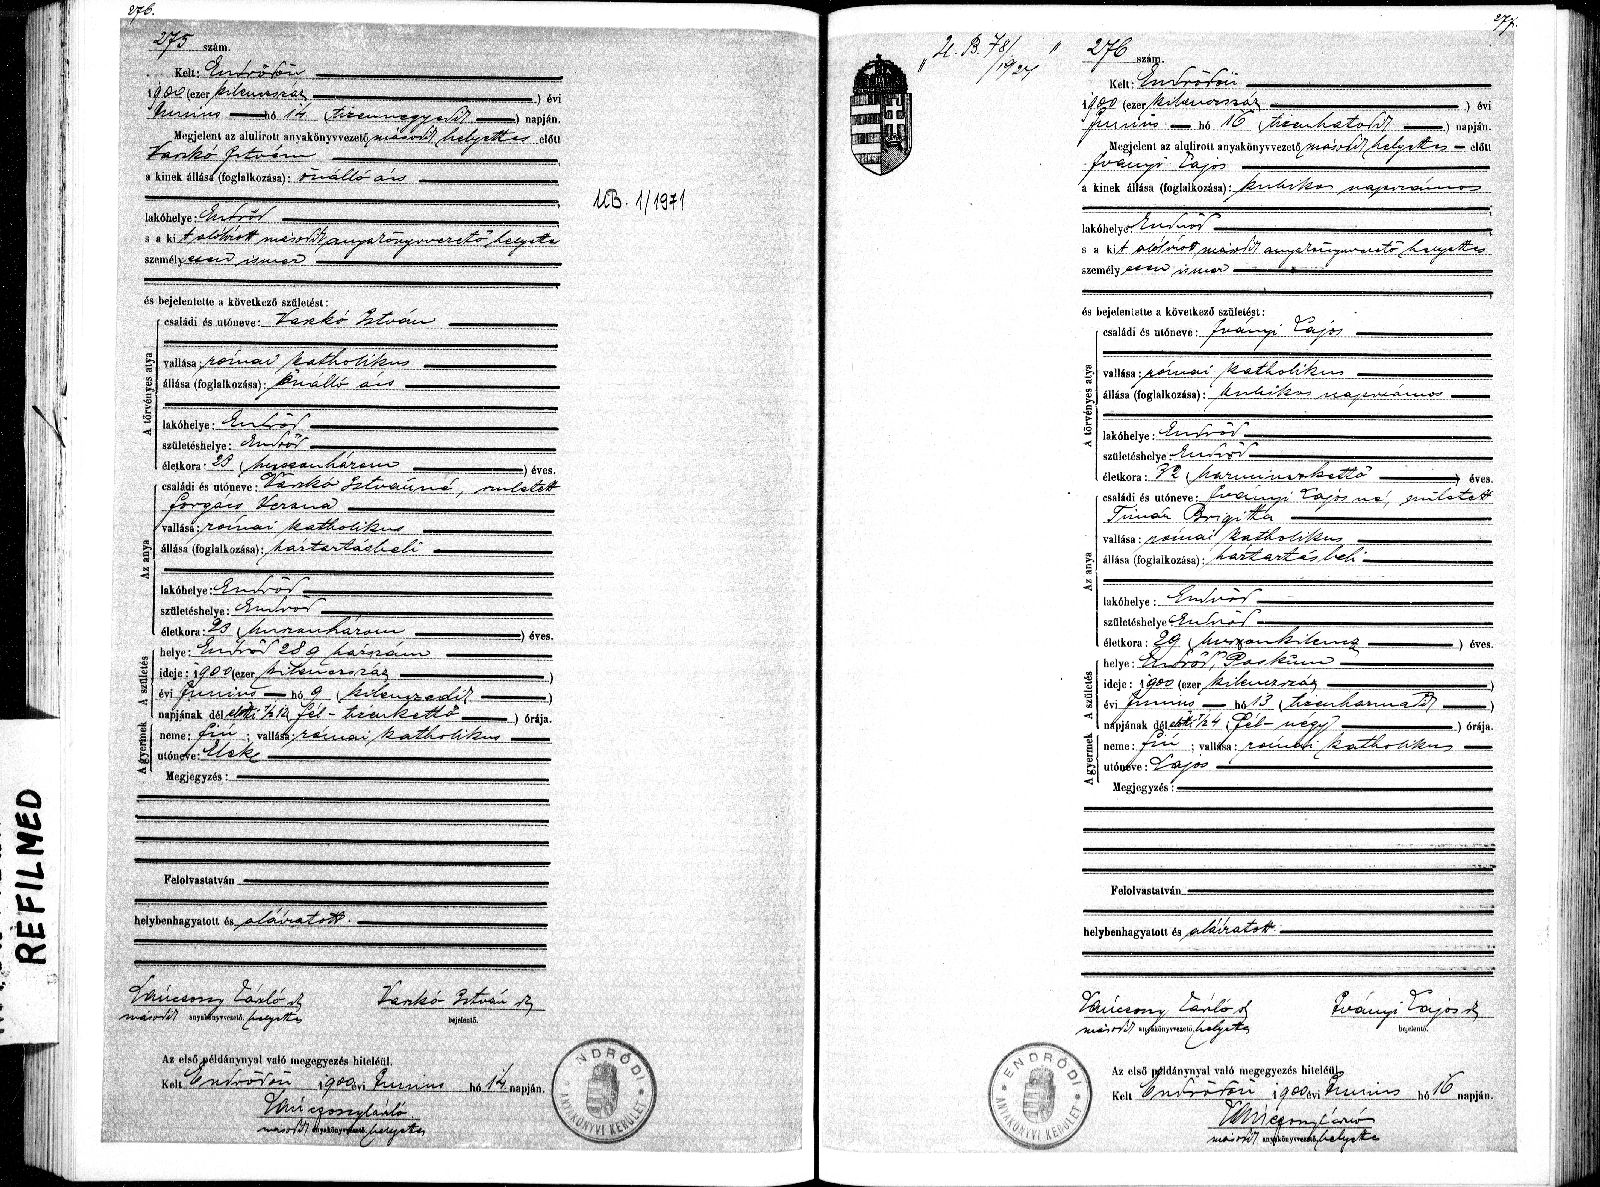 276.
275 szám.
Kelt: Endrődön
1900 (ezer kilencszáz ) évi
Junius hó 14 (tizennegyedik ) napján.
Megjelent az alulirott anyakönyvvezető második helyettes előtt
Varkó István
a kinek állása (foglalkozása): önálló ács
lakóhelye: Endrőd
s a kit alólirott második anyakönyvvezető helyettes
személyesen ismer
és bejelentette a következő születést:
A törvényes atya
családi és utóneve: Varkó István
vallása: római katholikus
állása (foglalkozása): önálló ács
lakóhelye: Endrőd
születéshelye: Endrőd
életkora: 23 (huszonhárom ) éves.
Az anya
családi és utóneve: Varkó Istvánné, született
Forgács Verona
vallása: római katholikus
állása (foglalkozása): háztartásbeli
lakóhelye: Endrőd
születéshelye: Endrőd
életkora: 23 (huszonhárom ) éves.
A születés
helye: Endrőd 289 házszám
ideje: 1900 (ezer kilencszáz )
évi Junius hó 9 (kilenczedik )
napjának délelőtti 1/2 12 (fél-tizenkettő ) órája.
A gyermek
neme: fiú ; vallása: római katholikus
utóneve: Elek
Megjegyzés:
Felolvastatván
helybenhagyatott és aláiratott.
Láncsony László sk Varkó István sk
második anyakönyvvezető. helyettes bejelentő.
Az első példánynyal való megegyezés hiteléül.
Kelt Endrődön 1900 évi Junius hó 14 napján.
második anyakönyvvezető. helyettes
ENDRŐDI
ANYAKÖNYVI KERÜLET
UB. 1/1971
REFILMED
277.
U. B. 78/1924
276 szám.
Kelt: Endrődön
1900 (ezer kilencszáz ) évi
Junius hó 16 (tizenhatodik ) napján.
Megjelent az alulirott anyakönyvvezető második helyettes előtt
Iványi Lajos
a kinek állása (foglalkozása): kubikos napszámos
lakóhelye: Endrőd
s a kit alólirott második anyakönyvvezető helyettes
személyesen ismer
és bejelentette a következő születést:
A törvényes atya
családi és utóneve: Iványi Lajos
vallása: római katholikus
állása (foglalkozása): kubikos napszámos
lakóhelye: Endrőd
születéshelye: Endrőd
életkora: 32 (harminczkettő ) éves.
Az anya
családi és utóneve: Iványi Lajosné, született
Timár Brigitta
vallása: római katholikus
állása (foglalkozása): háztartásbeli
lakóhelye: Endrőd
születéshelye: Endrőd
életkora: 29 (huszonkilencz ) éves.
A születés
helye: Endrőd,
ideje: 1900 (ezer kilencszáz )
évi Junius hó 13 (tizenharmadik )
napjának délelőtti 1/2 4 (fél-négy ) órája.
A gyermek
neme: fiú ; vallása: római katholikus
utóneve: Lajos
Megjegyzés:
Felolvastatván
helybenhagyatott és aláiratott.
Láncsony László sk Iványi Lajos sk
második anyakönyvvezető. helyettes bejelentő.
Az első példánynyal való megegyezés hiteléül.
Kelt Endrődön 1900 évi Junius hó 16 napján.
második anyakönyvvezető. helyettes
ENDRŐDI
ANYAKÖNYVI KERÜLET